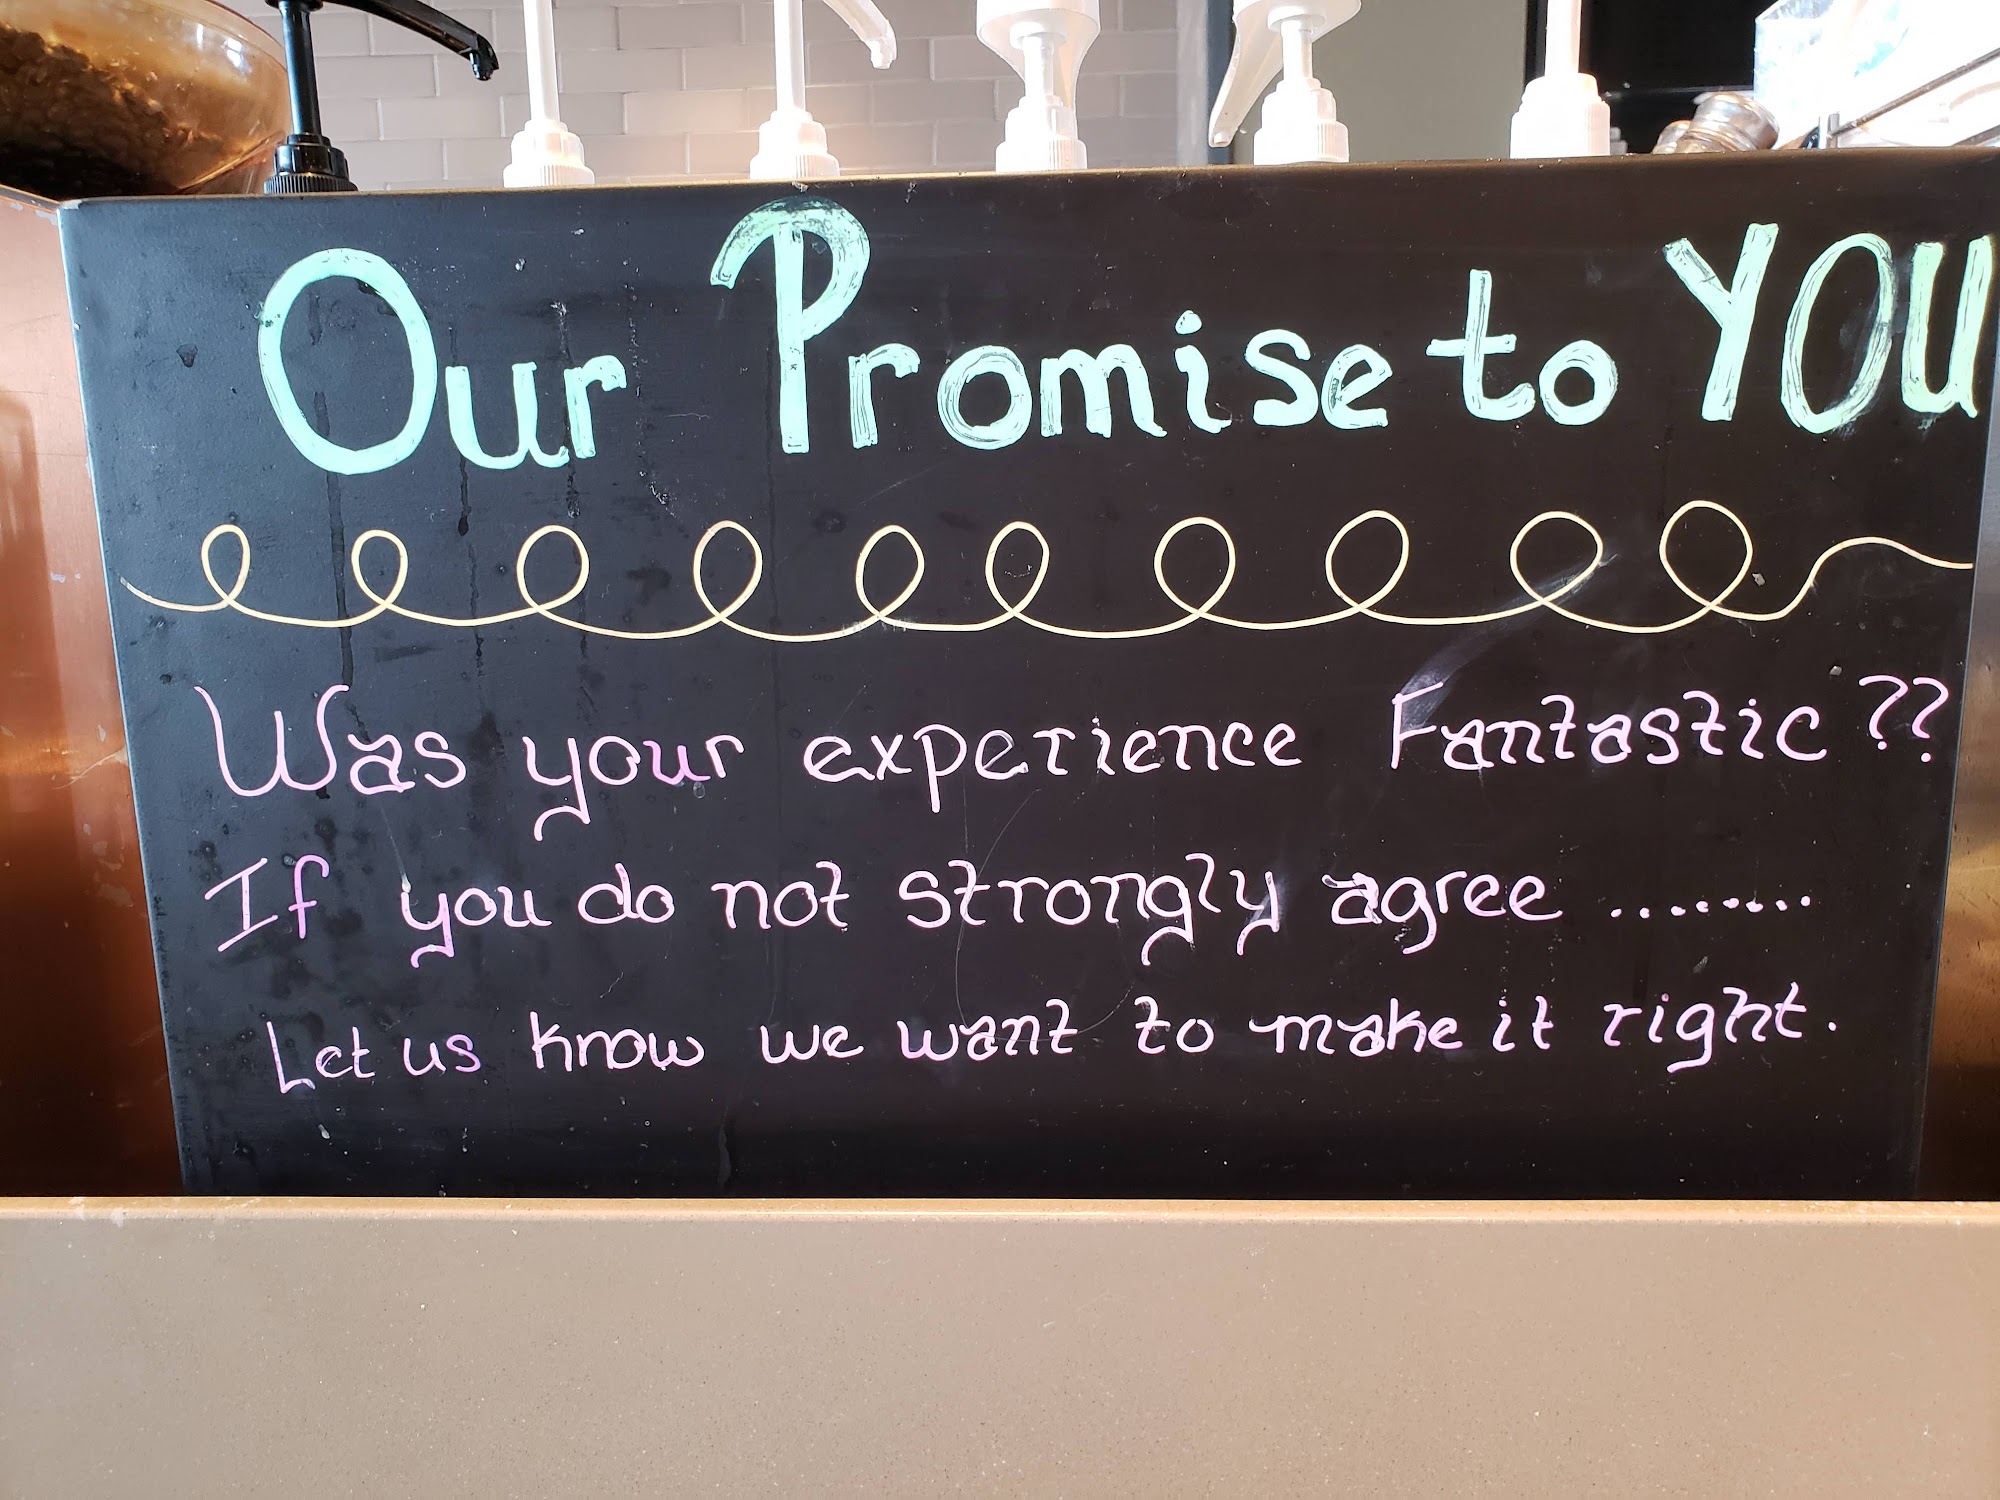 Our Promise to YOU
Was your experience Fantastic??
If you do not strongly agree ........
Let us know we want to make it right.